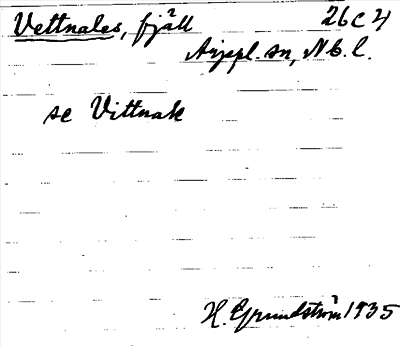 Vettnales, fjäll 26C4
Arjepl. sn, Nb. l.
se Vittnak
H. Grundström 1935